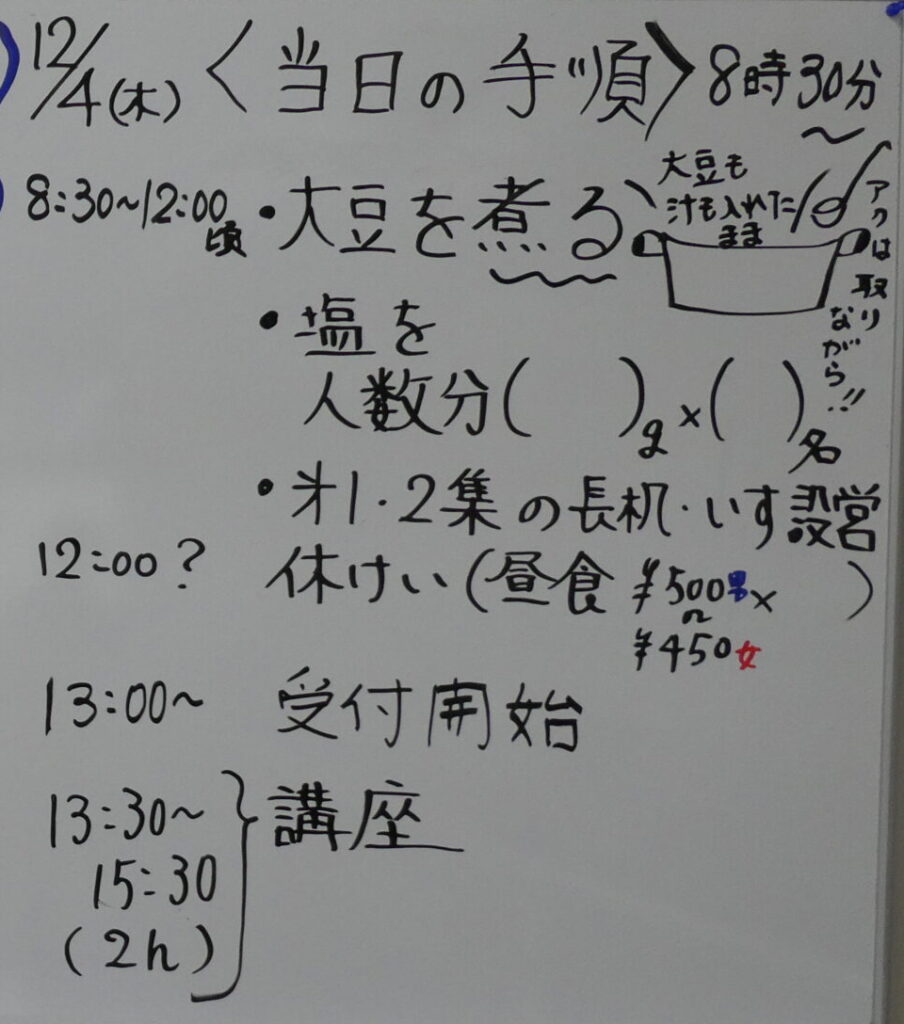 12/4(木) 〈当日の手順〉 8時30分~
8:30~12:00頃 ・大豆を煮る
大豆も
汁も入れた
まま
アクは取りながら!!
・塩を
人数分( )g×( )名
・㐧1・2集の長机・いす設営
12:00? 休けい(昼食 ¥500男× )
¥450女
13:00~ 受付開始
13:30~ 講座
15:30
(2h)